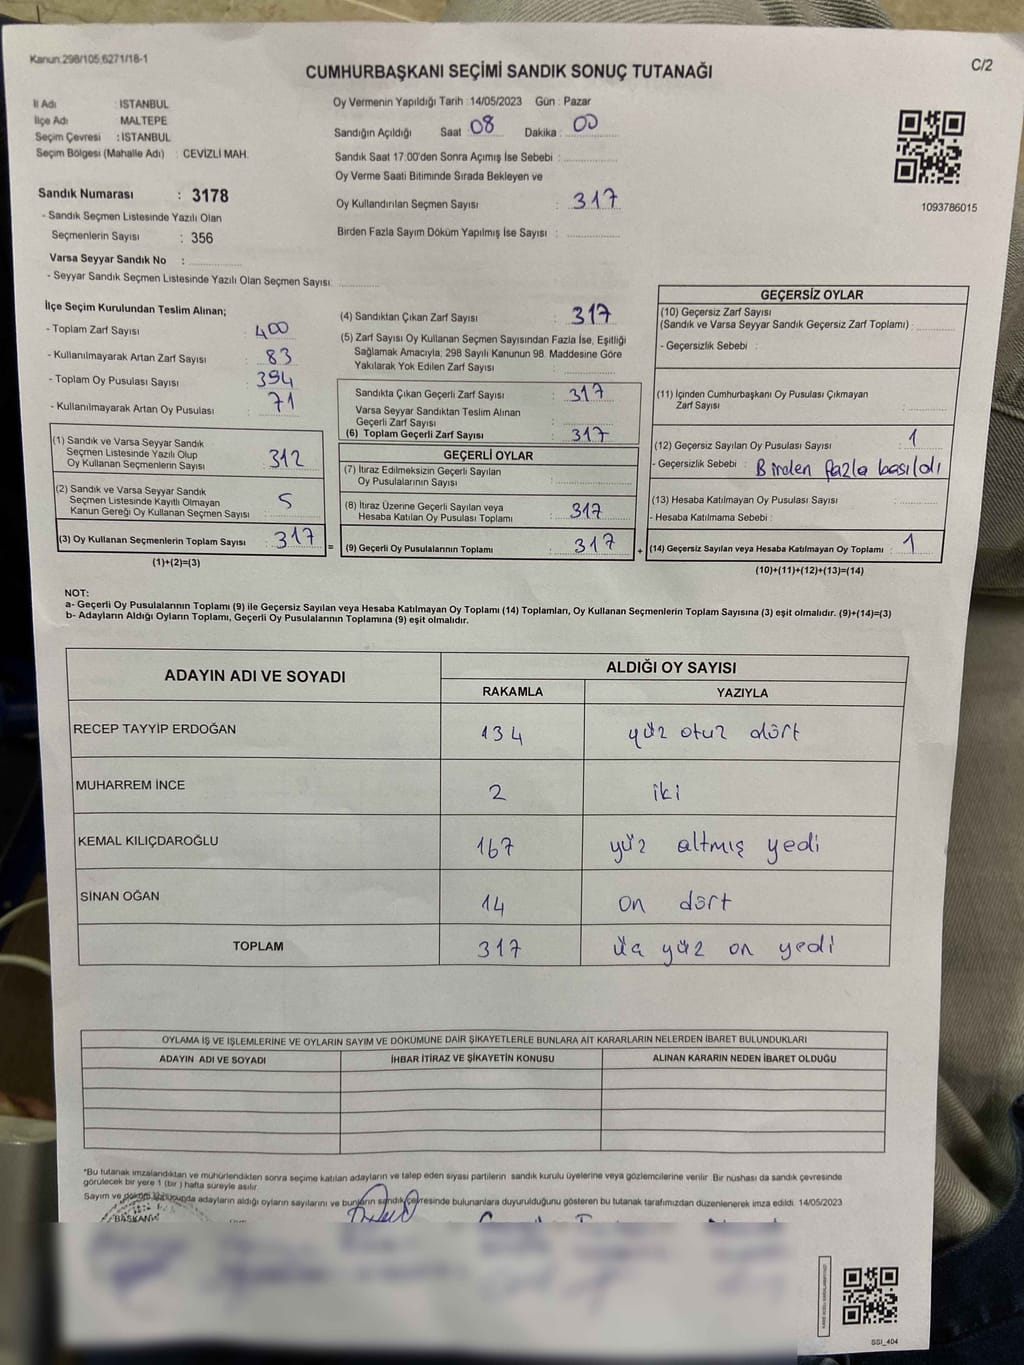 Kanun:298/105,6271/18-1
C/2
CUMHURBAŞKANI SEÇİMİ SANDIK SONUÇ TUTANAĞI
İl Adı : İSTANBUL
İlçe Adı : MALTEPE
Seçim Çevresi : İSTANBUL
Seçim Bölgesi (Mahalle Adı) : CEVİZLİ MAH.
Sandık Numarası : 3178
- Sandık Seçmen Listesinde Yazılı Olan
Seçmenlerin Sayısı : 356
Varsa Seyyar Sandık No :
- Seyyar Sandık Seçmen Listesinde Yazılı Olan Seçmen Sayısı:
Oy Vermenin Yapıldığı Tarih :14/05/2023 Gün : Pazar
Sandığın Açıldığı Saat 08 Dakika : 00
Sandık Saat 17:00'den Sonra Açımış İse Sebebi :
Oy Verme Saati Bitiminde Sırada Bekleyen ve
Oy Kullandırılan Seçmen Sayısı : 317
Birden Fazla Sayım Döküm Yapılmış İse Sayısı :
1093786015
İlçe Seçim Kurulundan Teslim Alınan;
- Toplam Zarf Sayısı : 400
- Kullanılmayarak Artan Zarf Sayısı : 83
- Toplam Oy Pusulası Sayısı : 394
- Kullanılmayarak Artan Oy Pusulası : 71
(1) Sandık ve Varsa Seyyar Sandık
Seçmen Listesinde Yazılı Olup
Oy Kullanan Seçmenlerin Sayısı : 312
(2) Sandık ve Varsa Seyyar Sandık
Seçmen Listesinde Kayıtlı Olmayan
Kanun Gereği Oy Kullanan Seçmen Sayısı : 5
(3) Oy Kullanan Seçmenlerin Toplam Sayısı : 317
(1)+(2)=(3)
=
(4) Sandıktan Çıkan Zarf Sayısı : 317
(5) Zarf Sayısı Oy Kullanan Seçmen Sayısından Fazla İse, Eşitliği
Sağlamak Amacıyla; 298 Sayılı Kanunun 98. Maddesine Göre
Yakılarak Yok Edilen Zarf Sayısı :
Sandıkta Çıkan Geçerli Zarf Sayısı : 317
Varsa Seyyar Sandıktan Teslim Alınan
Geçerli Zarf Sayısı :
(6) Toplam Geçerli Zarf Sayısı : 317
GEÇERLİ OYLAR
(7) İtiraz Edilmeksizin Geçerli Sayılan
Oy Pusulalarının Sayısı :
(8) İtiraz Üzerine Geçerli Sayılan veya
Hesaba Katılan Oy Pusulası Toplamı : 317
(9) Geçerli Oy Pusulalarının Toplamı : 317
+
GEÇERSİZ OYLAR
(10) Geçersiz Zarf Sayısı
(Sandık ve Varsa Seyyar Sandık Geçersiz Zarf Toplamı) :
- Geçersizlik Sebebi :
(11) İçinden Cumhurbaşkanı Oy Pusulası Çıkmayan
Zarf Sayısı :
(12) Geçersiz Sayılan Oy Pusulası Sayısı : 1
- Geçersizlik Sebebi : Birden fazla basıldı
(13) Hesaba Katılmayan Oy Pusulası Sayısı :
- Hesaba Katılmama Sebebi :
(14) Geçersiz Sayılan veya Hesaba Katılmayan Oy Toplamı : 1
(10)+(11)+(12)+(13)=(14)
NOT:
a- Geçerli Oy Pusulalarının Toplamı (9) ile Geçersiz Sayılan veya Hesaba Katılmayan Oy Toplamı (14) Toplamları, Oy Kullanan Seçmenlerin Toplam Sayısına (3) eşit olmalıdır. (9)+(14)=(3)
b- Adayların Aldığı Oyların Toplamı, Geçerli Oy Pusulalarının Toplamına (9) eşit olmalıdır.
ADAYIN ADI VE SOYADI
ALDIĞI OY SAYISI
RAKAMLA YAZIYLA
RECEP TAYYİP ERDOĞAN 134 yüz otuz dört
MUHARREM İNCE 2 iki
KEMAL KILIÇDAROĞLU 167 yüz altmış yedi
SİNAN OĞAN 14 on dört
TOPLAM 317 üç yüz on yedi
OYLAMA İŞ VE İŞLEMLERİNE VE OYLARIN SAYIM VE DÖKÜMÜNE DAİR ŞİKAYETLERLE BUNLARA AİT KARARLARIN NELERDEN İBARET BULUNDUKLARI
ADAYIN ADI VE SOYADI İHBAR İTİRAZ VE ŞİKAYETİN KONUSU ALINAN KARARIN NEDEN İBARET OLDUĞU
*Bu tutanak imzalandıktan ve mühürlendikten sonra seçime katılan adayların ve talep eden siyası partilerin sandık kurulu üyelerine veya gözlemcilerine verilir. Bir nüshası da sandık çevresinde
görülecek bir yere 1 (bir ) hafta süreyle asılır.
Sayım ve döküm sonucunda adayların aldığı oyların sayılarını ve bunların sandık çevresinde bulunanlara duyurulduğunu gösteren bu tutanak tarafımızdan düzenlenerek imza edildi. 14/05/2023
BAŞKAN
SSİ_404